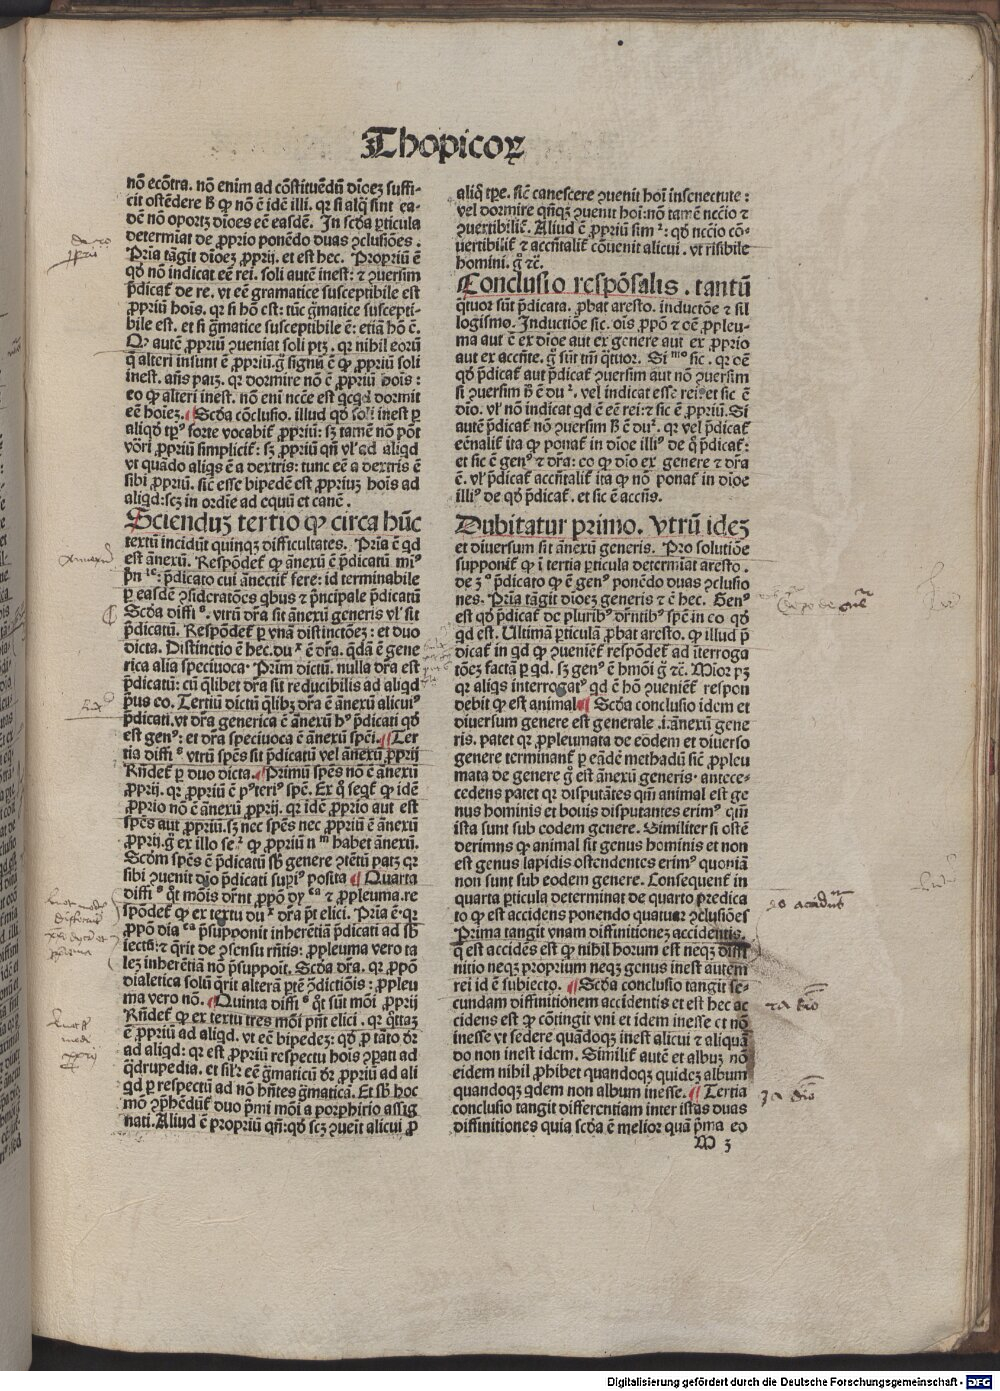 Thopicoꝝ
nō ecōtra. nō enim ad cōstituēdū dīoeꝫ suffi-
cit ostēdere ꝙ nō ē idē illi. qr si alq̄ sint ea-
dē nō oportꝫ dīoes eē easdē. In scd̄a ꝑticula
determīat de ꝓprio ponēdo duas ꝯclusiōes.
Pria tāgit dīoeꝫ ꝓprij. et est hec. Propriū ē
qd̄ nō indicat eē rei. soli autē inest: ⁊ ꝯuersim
p̄dicat̄ de re. vt eē gramatice susceptibile est
ꝓpriū hoīs. qr si hō est: tūc gm̄atice suscepti-
bile est. et si gm̄atice susceptibile ē: etiā hō ē.
Ꝙ autē ꝓpriū ꝯueniat soli ptꝫ. qr nihil eorū
q̄ alteri insunt ē ꝓpriū. g̊ signū ē ꝙ ꝓpriū soli
inest. añs patꝫ. qr dormire nō ē ꝓpriū hoīs:
eo ꝙ alteri inest. nō eni nccē est qcqd dormit
eē hoīeꝫ. ¶ Scd̄a cōclusio. illud qd̄ soli inest ꝑ
aliqd̄ tp̄ꝰ forte vocabit̄ ꝓpriū: sꝫ tamē nō pōt
vōri ꝓpriū simplicit̄: sꝫ ꝓpriū qn̄ vl' ad aliqd
vt quādo aliqs ē a dextris: tunc eē a dextris ē
sibi ꝓpriū. sic̄ esse bipedē est ꝓpriuꝫ hoīs ad
aliqd: scꝫ in ordīe ad equū et canē.
Scienduꝫ tertio ꝙ circa hūc
textū incidūt quinqꝫ difficultates. Pria ē qd
est ānexū. Respōdet̄ ꝙ ānexū ē p̄dicatū miꝰ
p̄n ͥᶜᵉ: p̄dicato cui ānectit̄ fere: id terminabile
ꝑ easdē ꝯsidratōes qbus ⁊ p̄ncipale p̄dicatū
Scd̄a diffi ˢ. vtrū dr̄a sit ānexū generis vl' sit
p̄dicatū. Respōdet̄ ꝑ vnā distinctōeꝫ: et duo
dicta. Distinctio ē hec. du ˣ ē dr̄a. qdā ē gene
rica alia speciuoca. Prim̄ dictū. nulla dr̄a est
p̄dicatū: cū q̄libet dr̄a sit reducibilis ad aliqd
p̄us eo. Tertiū dictū q̄libꝫ dr̄a ē ānexū alicuiꝰ
p̄dicati. vt dr̄a generica ē ānexū hꝰ p̄dicati qd̄
est genꝰ: et dr̄a speciuoca ē ānexū spēi. ¶ Ter
tia diffi ˢ vtrū spēs sit p̄dicatū vel ānexū ꝓprij
Rn̄det̄ ꝑ duo dicta. ¶ Primū spēs nō ē ānexū
ꝓprij. qr ꝓpriū ē pꝰteriꝰ spē. Ex q̊ seqt̄ ꝙ idē
ꝓprio nō ē ānexū ꝓprij. qr idē ꝓprio aut est
spēs aut ꝓpriū. sꝫ nec spēs nec ꝓpriū ē ānexū
ꝓprij. g̊ ex illo seˀ ꝙ ꝓpriū n ͫ habet ānexū.
Scd̄m spēs ē p̄dicatū sb̄ genere ꝯtētū patꝫ qr
sibi ꝯuenit dīo p̄dicati supiꝰ posita ¶ Quarta
diffi ˢ q̊t mōis dr̄nt ꝓpō dy ᶜᵃ ⁊ ꝓpleuma. re
spōdet̄ ꝙ ex textu du ˣ dr̄a p̄t elici. Pria ē. qr
ꝓpō dia ᶜᵃ p̄supponit inherētiā p̄dicati ad sb̄
iectū: ⁊ q̄rit de ꝯsensu rn̄tis: ꝓpleuma vero ta
leꝫ inherētiā nō p̄suppoīt. Scd̄a dr̄a. qr ꝓpō
dialetica solū q̄rit alterā ꝑtē ꝯdictiōis: ꝓpleu
ma vero nō. ¶ Quinta diffi ˢ q̊t sūt mōi ꝓprij
Rn̄det̄ ꝙ ex textu tres mōi pn̄t elici. qr q̄ttaꝫ
ē ꝓpriū ad aliqd. vt eē bipedeꝫ: qd̄ ꝑ tāto dr̄
ad aliqd: qr est ꝓpriū respectu hoīs ꝯꝑati ad
q̄drupedia. et sil'r eē gm̄aticū dr̄ ꝓpriū ad ali
qd ꝑ respectū ad nō hn̄tes gm̄aticā. Et sb̄ hoc
mō ꝯp̄hēdūt̄ duo p̄mi mōi a porphirio assig
nati. Aliud ē propriū qn̄: qd̄ scꝫ ꝯueīt alicui ꝓ
aliq̊ tp̄e. sic̄ canescere ꝯuenit hoī insenectute:
vel dormire qn̄qꝫ ꝯuenit hoī: nō tamē nec̄io ⁊
ꝯuertibilit̄. Aliud ē ꝓpriū sim ˣ: qd̄ nec̄io cō-
uertibilit̄ ⁊ acc̄ntalit̄ cōuenit alicui. vt risibile
homini. g̊ ⁊c̄.
Conclusio respōsalis. tantū
q̄tuor sūt p̄dicata. ꝓbat aresto. inductōe ⁊ sil
logismo. Inductiōe sic. oīs ꝓpō ⁊ oē ꝓpleu-
ma aut ē ex dīoe aut ex genere aut ex ꝓprio
aut ex accn̄te. g̊ sūt tm̄ q̄tuor. Si ᵐᵒ sic. qr oē
qd̄ p̄dicat̄ aut p̄dicat̄ ꝯuersim aut nō ꝯuersim
si ꝯuersim ħ ē du ˣ. vel indicat esse rei: et sic ē
dīo. vl' nō indicat qd ē eē rei: ⁊ sic ē ꝓpriū. Si
autē p̄dicat̄ nō ꝯuersim ħ ē duˣ. qr vel p̄dicat̄
eēnalit̄ ita ꝙ ponat̄ in dīoe illiꝰ de q̊ p̄dicat̄:
et sic ē genꝰ ⁊ dr̄a: eo ꝙ dīo ex genere ⁊ dr̄a
ē. vl' p̄dicat̄ accn̄talit̄ ita ꝙ nō ponat̄ in dīoe
illiꝰ de qd̄ p̄dicat̄. et sic ē accn̄s.
Dubitatur primo. Vtrū ideꝫ
et diuersum sit ānexū generis. Pro solutiōe
supponit̄ ꝙ ī tertia ꝑticula determīat aresto.
de ꝫ ᵒ p̄dicato ꝙ ē genꝰ ponēdo duas ꝯclusio
nes. Pria tāgit dīoeꝫ generis ⁊ ē hec. Genꝰ
est qd̄ p̄dicat̄ de pluribꝰ dr̄ntibꝰ spē in eo qd̄
qd est. Vltimā ꝑticulā ꝓbat aresto. ꝙ illud p̄
dicat̄ in qd ꝙ ꝯueniēt̄ respōdet̄ ad īterroga
tōeꝫ factā ꝑ qd. sꝫ genꝰ ē hmōi g̊ ⁊c̄. Mīor pꝫ
qr aliqs interrogatꝰ qd ē hō ꝯueniēt̄ respon
debit ꝙ est animal ¶ Scd̄a conclusio idem et
diuersum genere est generale .i. ānexū gene
ris. patet qr ꝓpleumata de eōdem et diuerso
genere terminant̄ ꝑ eādē methadū sic̄ ꝓpleu
mata de genere g̊ est ānexū generis. antece-
cedens patet qr disputātes qm̄ animal est ge
nus hominis et bouis disputantes erimꝰ qm̄
ista sunt sub eodem genere. Similiter si ostē
derimus ꝙ animal sit genus hominis et non
est genus lapidis ostendentes erimꝰ quoniā
non sunt sub eodem genere. Consequent̄ in
quarta ꝑticula determinat de quarto predica
to ꝙ est accidens ponendo quatuor ꝯclusiōes
Prima tangit vnam diffinitionez accidentis.
q̄ est accidēs est ꝙ nihil horum est neqꝫ diffi
nitio neqꝫ proprium neqꝫ genus inest autem
rei id ē subiecto. ¶ Scd̄a conclusio tangit se-
cundam diffinitionem accidentis et est hec ac
cidens est ꝙ cōtingit vni et idem inesse et nō
inesse vt sedere quādoqꝫ inest alicui ⁊ aliquā
do non inest idem. Similit̄ autē et albuꝫ nō
eidem nihil ꝓhibet quandoqꝫ quideꝫ album
quandoqꝫ qdem non album inesse. ¶ Tertia
conclusio tangit differentiam inter istas duas
diffinitiones quia scd̄a ē melior quā p̄ma eo
M 3
Digitalisierung gefördert durch die Deutsche Forschungsgemeinschaft - DFG